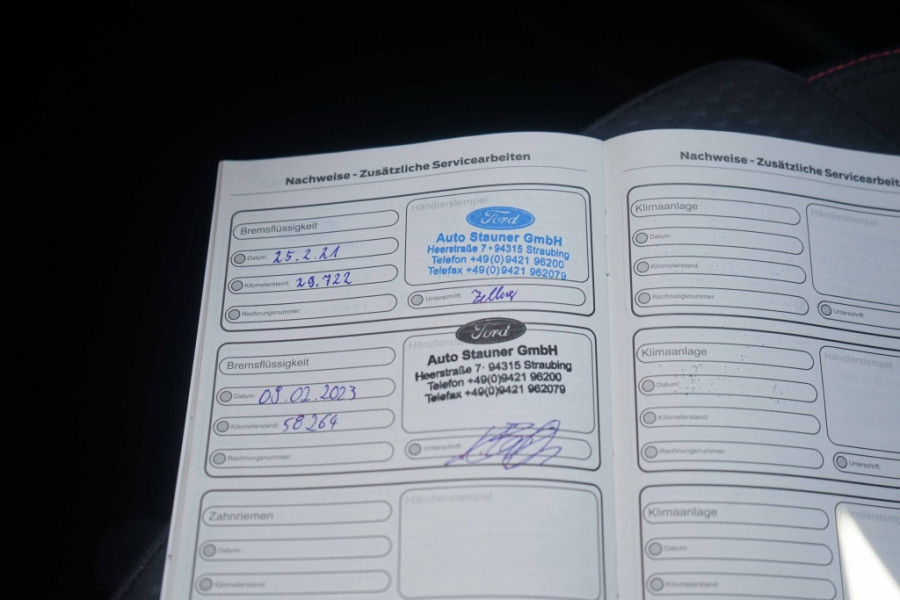 Nachweise - Zusätzliche Servicearbeiten
Bremsflüssigkeit
Händlerstempel
Ford
Auto Stauner GmbH
Heerstraße 7 · 94315 Straubing
Telefon +49(0)9421 96200
Telefax +49(0)9421 962079
Datum: 25.2.21
Kilometerstand: 29.722
Rechnungsnummer:
Unterschrift:
Bremsflüssigkeit
Ford
Auto Stauner GmbH
Heerstraße 7 · 94315 Straubing
Telefon +49(0)9421 96200
Telefax +49(0)9421 962079
Datum: 09.02.2023
Kilometerstand: 58264
Rechnungsnummer:
Unterschrift:
Zahnriemen
Händlerstempel
Datum:
Kilometerstand:
Nachweise - Zusätzliche Servicearbeit
Klimaanlage
Händlerstempel
Datum:
Kilometerstand:
Rechnungsnummer:
Unterschrift:
Klimaanlage
Händlerstempel
Datum:
Kilometerstand:
Rechnungsnummer:
Unterschrift:
Klimaanlage
Datum:
Kilometerstand: